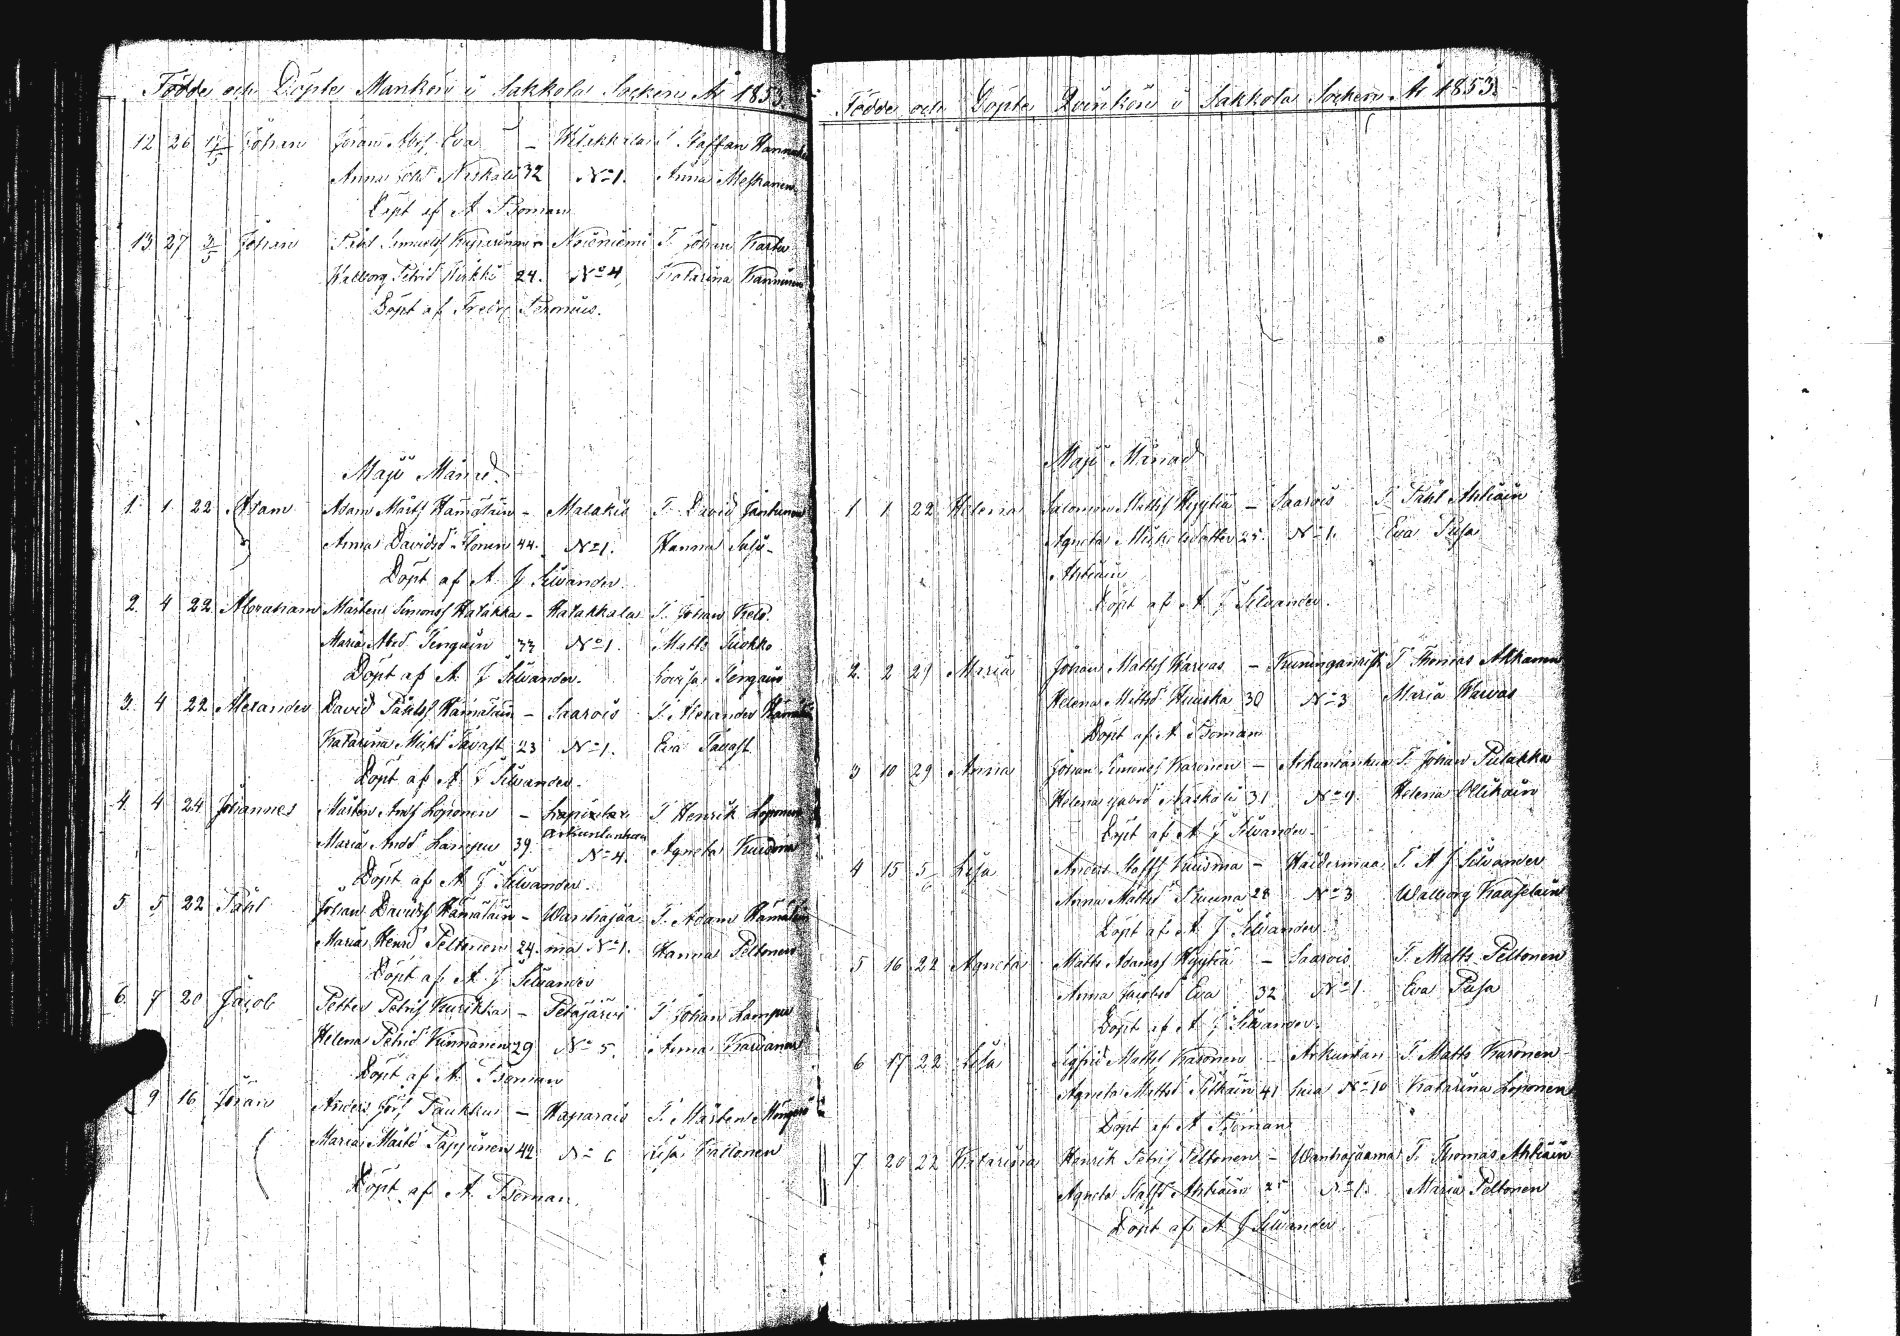 Födde och Döpte Mankön i Sakkola Socken År 1853.
12 26 Johan Jöran Abrs. Eva – Wilakkala T. Staffan
Anna 32 No 1. Anna Meskanen
Döpt af A. Boman
13 27 3/5 Johan Påhl Samuelss Kuparinen – Noisniemi T. Johan Karhu
Walborg Petrid. Kirkki 24. No 4, Katarina Kanninen
Döpt af Fredr.
Maji Månad.
1. 1 22 Adam Adam Mårts Hämäläin – Matakis T. David Jäntunen
Anna Davidsd. Ilonen 44. No 1. Hanna
Döpt af A. J. Silvander.
2. 4 22 Abraham Mårten Simonss Hatakka – Hatakkala T. Johan
Maria Abrd. Tenguin 33 No 1. Matts Suokko
Döpt af A. J. Silvander. Lovisa Tenguin
3. 4 22 Alexander David Påhlss Hämäläin – Saarois T. Alexander Hämäläin
Katarina Mickd. Tavast 23 No 1. Eva Tavast
Döpt af A. J. Silvander.
4. 4 24 Johannes Mårten Ands Loponen – T. Henrik Loponen
Maria Andd. Lampu 39. Arkuntanhua No 4. Agneta Kuisma
Döpt af A. J. Silvander.
5 5 22 Påhl Johan Davidss Hämäläin – Wanhajaa T. Adam Hämäläin
Maria Henrd. Peltonen 24. ma No 1. Hanna Peltonen
Döpt af A. J. Silvander
6. 7 20 Jacob Petter Petriss Kurikka – Petäjärvi T. Johan Lampu
Helena Petrid. Kinnanen 29 No 5. Anna
Döpt af A. Boman
9 16 Jöran Anders Jörs. Paukku – Haparais T. Mårten
Maria Mårtd. Pappinen 42 No 6 Lisa Kaltonen
Döpt af A. Boman.
Födde och Döpte Qvinkön i Sakkola Socken År 1853.
Maji Månad
1 1 22 Helena Salomon Mattss Hyytiä – Saarois T. Påhl Ahtiain
Agneta Mickelsdotter 25. No 1. Eva Pusa
Ahtiain
Döpt af A. J. Silvander.
2. 2 29 Maria Johan Mattss Karvas – Kuninganrist. T. Thomas Akkanen
Helena Mattsd. Huuska 30 No 3 Maria Karvas
Döpt af A. Boman
3 10 29 Anna Johan Simonss Karonen – Arkuntanhua T. Johan Pulakka
Helena Gabrd. Naskali 31 No 9. Helena Ollikain
Döpt af A. J. Silvander.
4 15 5/6 Lisa Anders Staffs Kuisma – Haitermaa T. A. J. Silvander
Anna Mattsd. 28 No 3 Walborg Kaaselain
Döpt af A. J. Silvander
5 16 22 Agneta Matts Adamss Hyytiä – Saarois T. Matts Peltonen
Anna Jacobsd. Eva 32 No 1 Eva Pusa
Döpt af A. J. Silvander.
6 17 22 Lisa Sigfrid Mattss Karonen – Arkuntan T. Matts Karonen
Agneta Mattsd. Pitkäin 41 hua No 10 Katarina Loponen
Döpt af A. Boman
7 20 22 Katarina Henrik Petriss Peltonen – Wanhajaama T. Thomas Ahtiain
Agneta Staffsd. Ahtiain 25 No 1. Maria Peltonen
Döpt af A. J. Silvander.